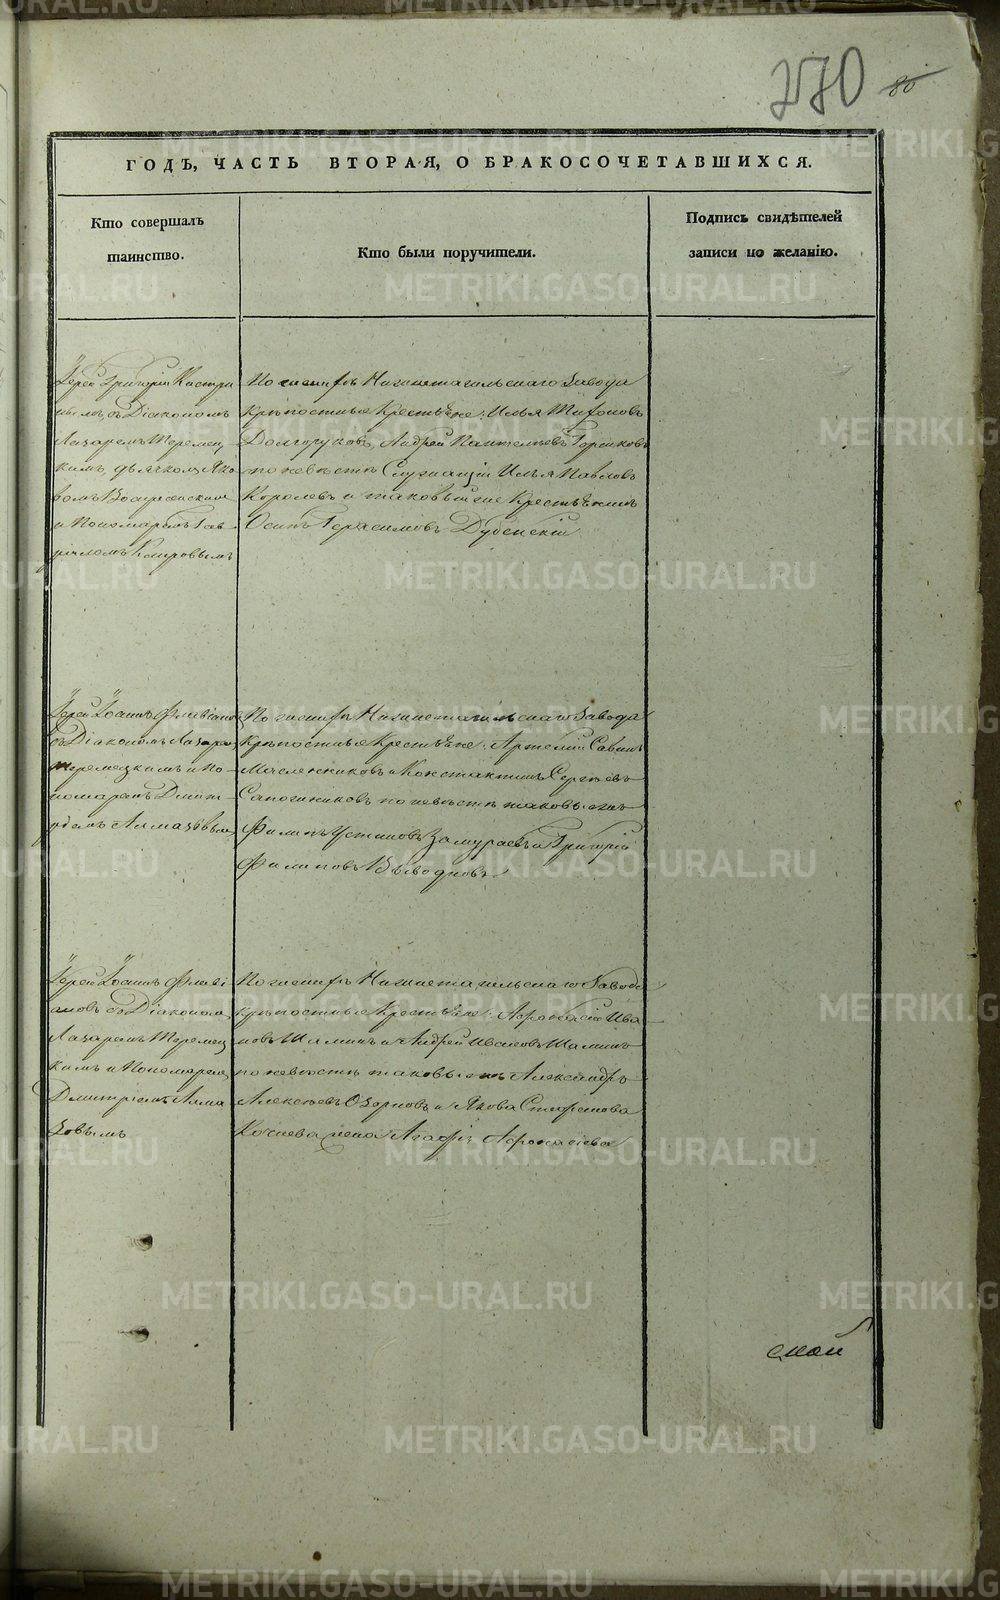 270 80
ГОДЪ, ЧАСТЬ ВТОРАЯ, О БРАКОСОЧЕТАВШИХСЯ.
Кто совершалъ
таинство.
Кто были поручители.
Подпись свидѣтелей
записи по желанію.
Іерей Григорій
съ Діакономъ
Лазаремъ Теремец
кимъ, дьячкомъ Яко
вомъ Воскресенскимъ
и Пономаремъ Гав
ріиломъ
По женихѣ Нижнетагильскаго Завода
крѣпостные Крестьяне: Илья Тихоновъ
Долгоруковъ, Андрей Пантелѣевъ Горшковъ
по невѣстѣ Служащій Илья Павловъ
Королевъ и таковый же Крестьянинъ
Осипъ Герасимовъ Дубенскій
Іерей Іоаннъ Флавіановъ
съ Діакономъ Лазаремъ
Теремецкимъ и По
номаремъ Дмит
ріемъ Алмазовымъ
По женихѣ Нижнетагильскаго Завода
крѣпостные Крестьяне: Артемій Савинъ
Масленниковъ и Константинъ Сергѣевъ
Сапожниковъ по невѣстѣ таковые жъ
Филипъ Устиновъ Замураевъ и Григорій
Филиповъ
Іерей Іоаннъ Флаві
ановъ съ Діакономъ
Лазаремъ Теремец
кимъ и Пономаремъ
Дмитріемъ Алма
зовымъ
По женихѣ Нижнетагильскаго Завода
крѣпостные Крестьяне: Афонасій Ива
новъ Шалинъ и Андрей Ивановъ Шалинъ
по невѣстѣ таковые жъ Александръ
Алексѣевъ Озорновъ и Якова Стефанова
жена Агафія Афонасіева
METRIKI.GASO-URAL.RU